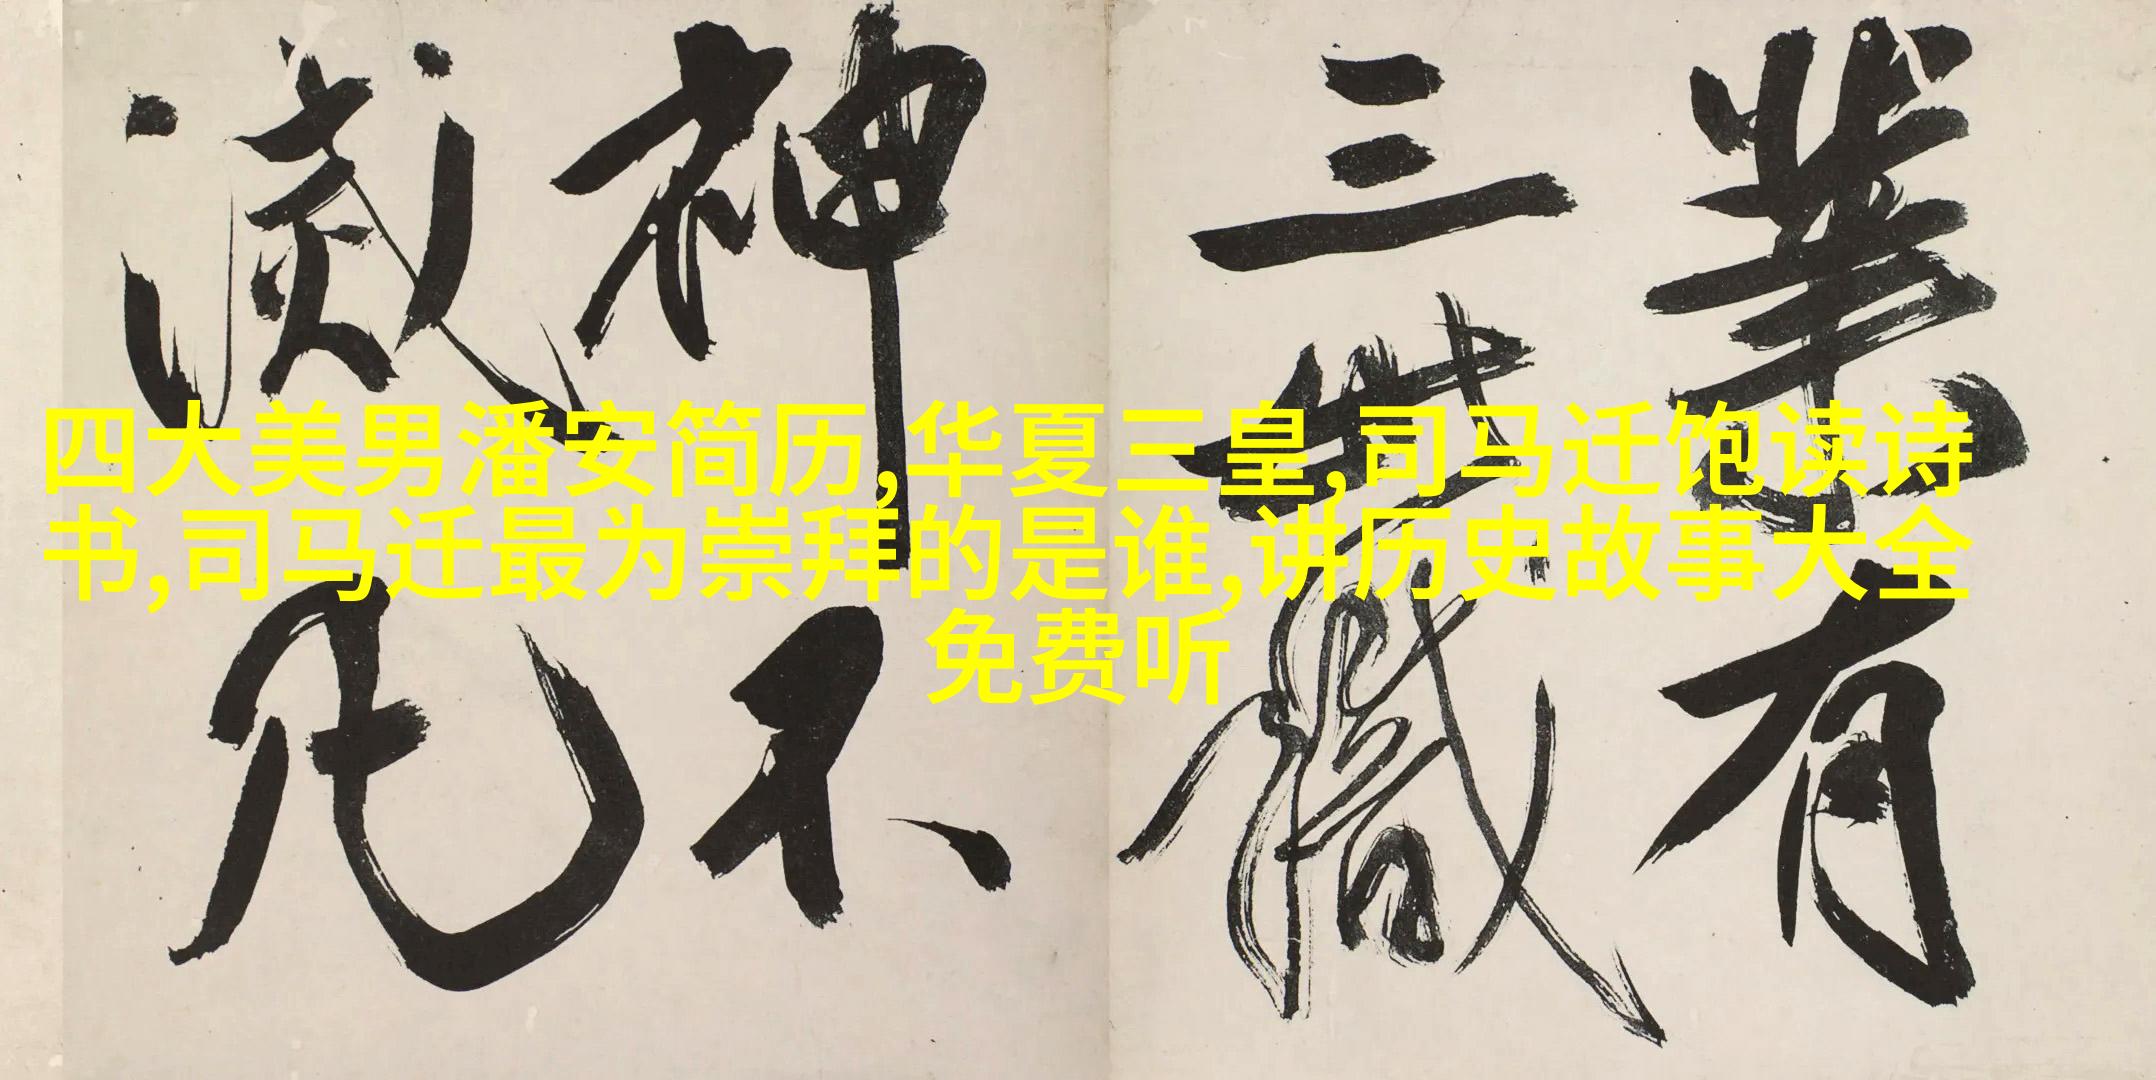 四大美男潘安简历,华夏三皇,司马迁饱读诗
书,司马迁最为崇拜的是谁,讲历史故事大全
免费听
業有
三世職
神不
滅凡